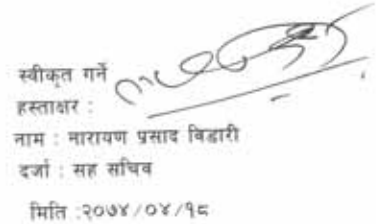 स्वीकृत गर्ने
हस्ताक्षर :
नाम : नारायण प्रसाद बिडारी
दर्जा : सह सचिव
मिति :२०७४/०४/१८